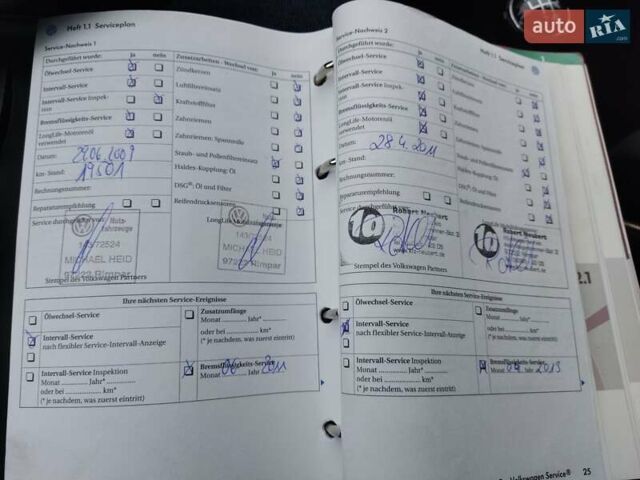 auto RIA.com
Heft 1.1 Serviceplan
Service-Nachweis 1
Durchgeführt wurde: ja nein
Zusatzarbeiten - Wechsel von: ja nein
Ölwechsel-Service
Zündkerzen
Intervall-Service
Luftfiltereinsatz
Intervall-Service Inspektion
Kraftstofffilter
Bremsflüssigkeits-Service
Zahnriemen
LongLife-Motorenöl verwendet
Zahnriemen: Spannrolle
Datum: 29.06.2009
Staub- und Pollenfiltereinsatz
km-Stand: 19501
Haldex-Kupplung: Öl
Rechnungsnummer:
DSG®: Öl und Filter
Reparaturempfehlung
Reifendrucksensoren
Service durchgeführt von:
LongLife-Motorölgarantie
Nutzfahrzeuge
143/72524
MICHAEL HEID
97222 Rimpar
143/72524
MICHAEL HEID
97222 Rimpar
Stempel des Volkswagen Partners
Ihre nächsten Service-Ereignisse
Ölwechsel-Service
Zusatzumfänge
Monat Jahr*
Intervall-Service
nach flexibler Service-Intervall-Anzeige
oder bei km*
(* je nachdem, was zuerst eintritt)
Intervall-Service Inspektion
Monat Jahr*
oder bei km*
(* je nachdem, was zuerst eintritt)
Bremsflüssigkeits-Service
Monat 06 Jahr 2011
Heft 1.1 Serviceplan
Service-Nachweis 2
Durchgeführt wurde: ja nein
Ölwechsel-Service
Zündkerzen
Intervall-Service
Luftfiltereinsatz
Intervall-Service Inspektion
Kraftstofffilter
Bremsflüssigkeits-Service
Zahnriemen
LongLife-Motorenöl verwendet
Zahnriemen: Spannrolle
Datum: 28.4.2011
Staub- und Pollenfiltereinsatz
km-Stand:
Haldex-Kupplung: Öl
Rechnungsnummer:
DSG®: Öl und Filter
Reparaturempfehlung
Reifendrucksensoren
Service durchgeführt von:
1a
Robert Neubert
1a
Robert Neubert
Stempel des Volkswagen Partners
Ihre nächsten Service-Ereignisse
Ölwechsel-Service
Zusatzumfänge
Monat Jahr*
Intervall-Service
nach flexibler Service-Intervall-Anzeige
oder bei km*
(* je nachdem, was zuerst eintritt)
Intervall-Service Inspektion
Monat Jahr*
oder bei km*
(* je nachdem, was zuerst eintritt)
Bremsflüssigkeits-Service
Monat 04 Jahr 2013
Volkswagen Service® 25
2.1